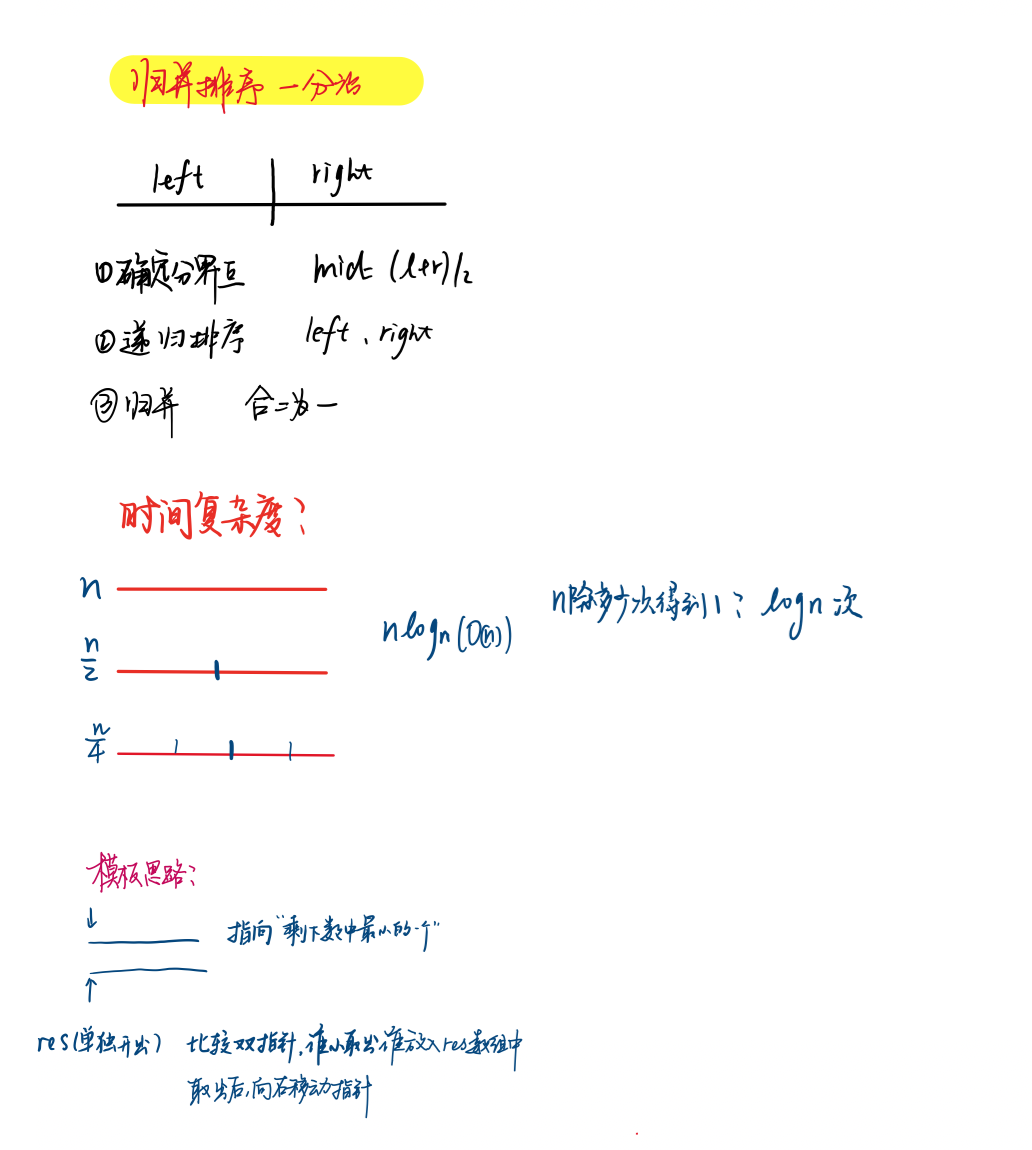 归并排序 — 分治
left right
①确定分界点 mid = (l+r)/2
②递归排序 left、right
③归并 合二为一
时间复杂度?
n
n/2
n/4
nlogn(O(n))
n除多少次得到1? logn次
模板思路:
指向"剩下数中最小的一个"
res(单独开出) 比较双指针,谁小取出谁放入res数组中
取出后,向右移动指针